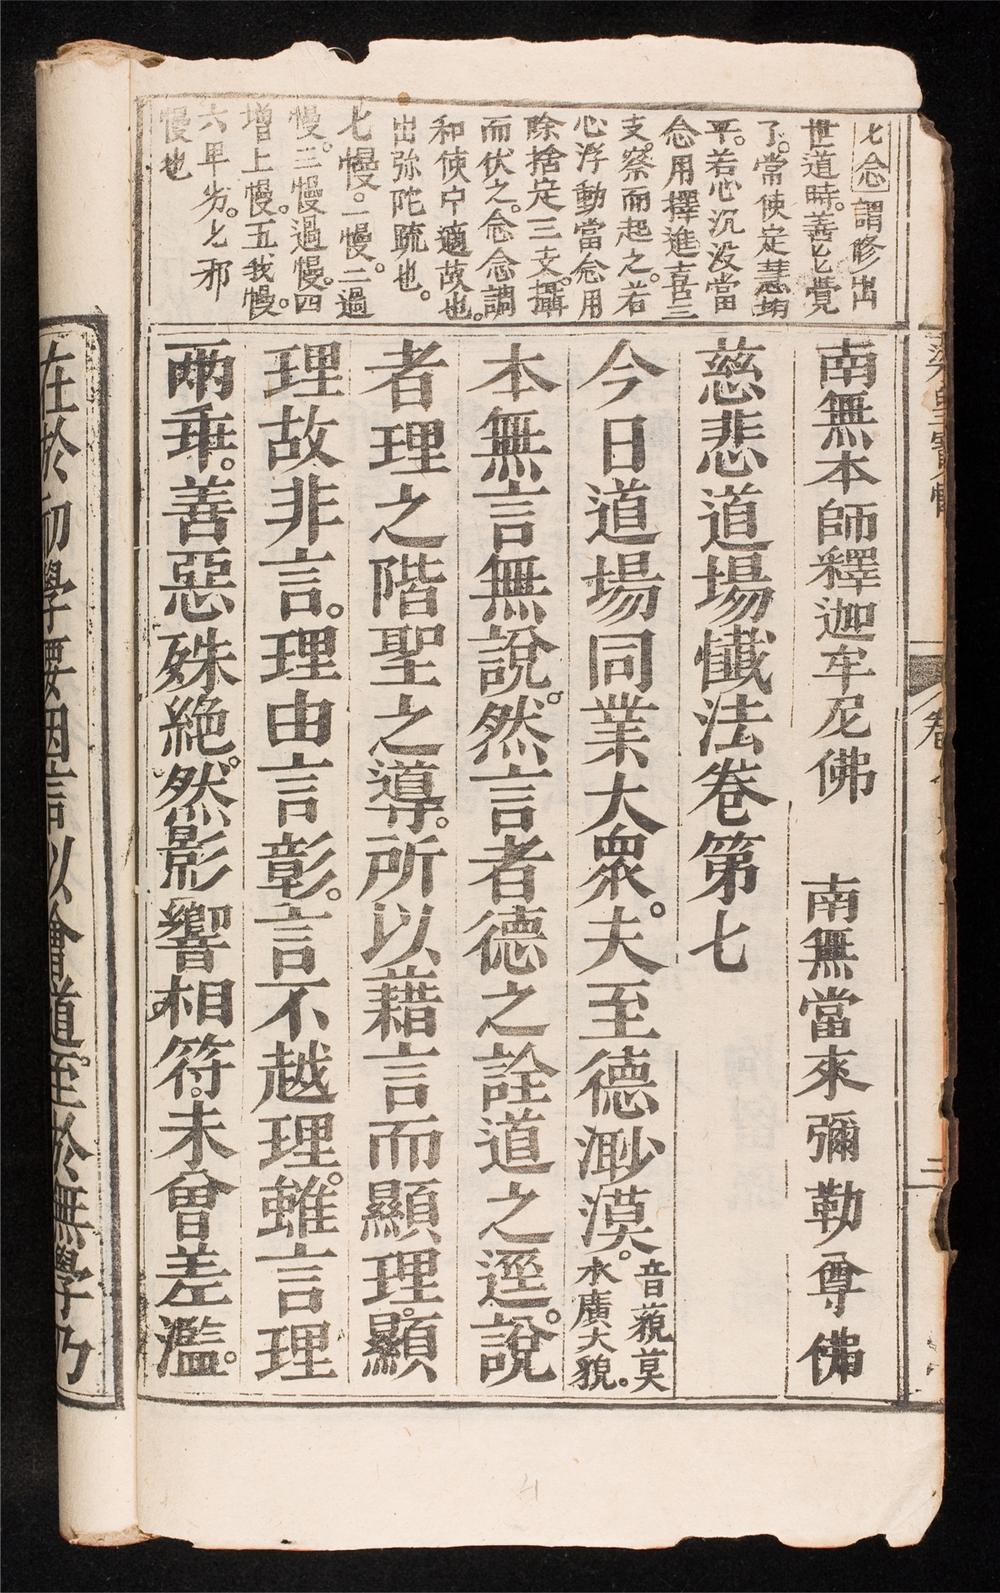 七念謂修出
世道時善七覺
了常使定慧均
平。若心沉没當
念用擇進喜三
支。察而起之。若
心浮動當念用
除捨定三支。攝
而伏之。念念調
和使中適故也。
出弥陀疏也。
七慢。一慢。二過
慢。三慢過慢。四
增上慢。五我慢。
六卑劣。七邪
慢也
南無本師釋迦牟尼佛 南無當來彌勒尊佛
慈悲道場懺法卷第七
今日道場同業大衆。夫至德渺漠。音藐莫水廣大貌。
本無言無說。然言者德之詮道之逕。說
者理之階聖之導。所以藉言而顯理。顯
理故非言。理由言彰。言不越理。雖言理
兩乖。善惡殊絕。然影響相符。未曾差濫。
在於初學要因言以會道。至於無學乃